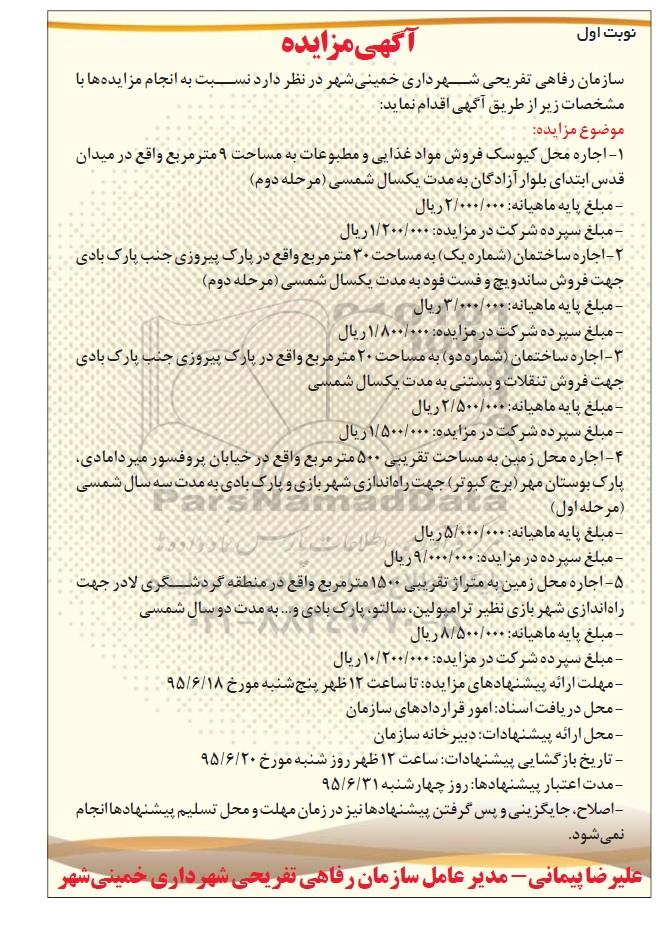 نوبت اول
آگهی مزایده
سازمان رفاهی تفریحی شهرداری خمینی‌شهر در نظر دارد نسبت به انجام مزایده‌ها با
مشخصات زیر از طریق آگهی اقدام نماید:
موضوع مزایده:
۱- اجاره محل کیوسک فروش مواد غذایی و مطبوعات به مساحت ۹ مترمربع واقع در میدان
قدس ابتدای بلوار آزادگان به مدت یکسال شمسی (مرحله دوم)
- مبلغ پایه ماهیانه: ۲/۰۰۰/۰۰۰ ریال
- مبلغ سپرده شرکت در مزایده: ۱/۲۰۰/۰۰۰ ریال
۲- اجاره ساختمان (شماره یک) به مساحت ۳۰ مترمربع واقع در پارک پیروزی جنب پارک بادی
جهت فروش ساندویچ و فست فود به مدت یکسال شمسی (مرحله دوم)
- مبلغ پایه ماهیانه: ۳/۰۰۰/۰۰۰ ریال
- مبلغ سپرده شرکت در مزایده: ۱/۸۰۰/۰۰۰ ریال
۳- اجاره ساختمان (شماره دو) به مساحت ۲۰ مترمربع واقع در پارک پیروزی جنب پارک بادی
جهت فروش تنقلات و بستنی به مدت یکسال شمسی
- مبلغ پایه ماهیانه: ۲/۵۰۰/۰۰۰ ریال
- مبلغ سپرده شرکت در مزایده: ۱/۵۰۰/۰۰۰ ریال
۴- اجاره محل زمین به مساحت تقریبی ۵۰۰ مترمربع واقع در خیابان پروفسور میردامادی،
پارک بوستان مهر (برج کبوتر) جهت راه‌اندازی شهر بازی و پارک بادی به مدت سه سال شمسی
(مرحله اول)
- مبلغ پایه ماهیانه: ۵/۰۰۰/۰۰۰ ریال
- مبلغ سپرده در مزایده: ۹/۰۰۰/۰۰۰ ریال
۵- اجاره محل زمین به متراژ تقریبی ۱۵۰۰ مترمربع واقع در منطقه گردشگری لادر جهت
راه‌اندازی شهر بازی نظیر ترامپولین، سالتو، پارک بادی و... به مدت دو سال شمسی
- مبلغ پایه ماهیانه: ۸/۵۰۰/۰۰۰ ریال
- مبلغ سپرده شرکت در مزایده: ۱۰/۲۰۰/۰۰۰ ریال
- مهلت ارائه پیشنهادهای مزایده: تا ساعت ۱۲ ظهر پنج‌شنبه مورخ ۹۵/۶/۱۸
- محل دریافت اسناد: امور قراردادهای سازمان
- محل ارائه پیشنهادات: دبیرخانه سازمان
- تاریخ بازگشایی پیشنهادات: ساعت ۱۲ ظهر روز شنبه مورخ ۹۵/۶/۲۰
- مدت اعتبار پیشنهادها: روز چهارشنبه ۹۵/۶/۳۱
- اصلاح، جایگزینی و پس گرفتن پیشنهادها نیز در زمان مهلت و محل تسلیم پیشنهادها انجام
نمی‌شود.
علیرضا پیمانی - مدیر عامل سازمان رفاهی تفریحی شهرداری خمینی‌شهر
ParsNamadData